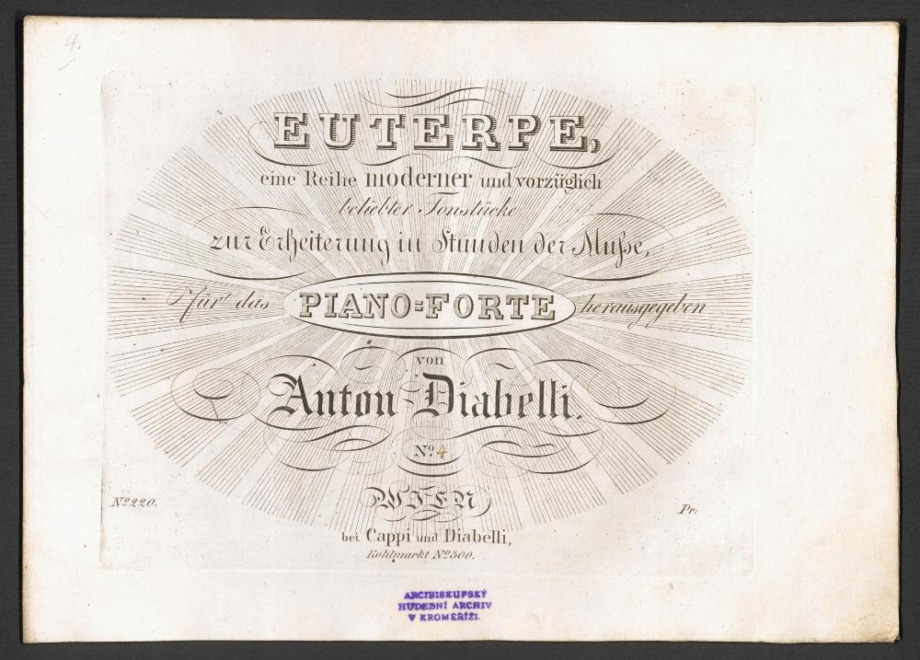 4.
EUTERPE,
eine Reihe moderner und vorzüglich
beliebter Tonstücke
zur Erheiterung in Stunden der Muſse,
für das PIANO=FORTE herausgegeben
von
Anton Diabelli.
No. 4
WIEN
No. 220. Pr:
bei Cappi und Diabelli,
Kohlmarkt No. 300.
ARCIBISKUPSKÝ
HUDEBNÍ ARCHIV
V KROMĚŘÍŽI.